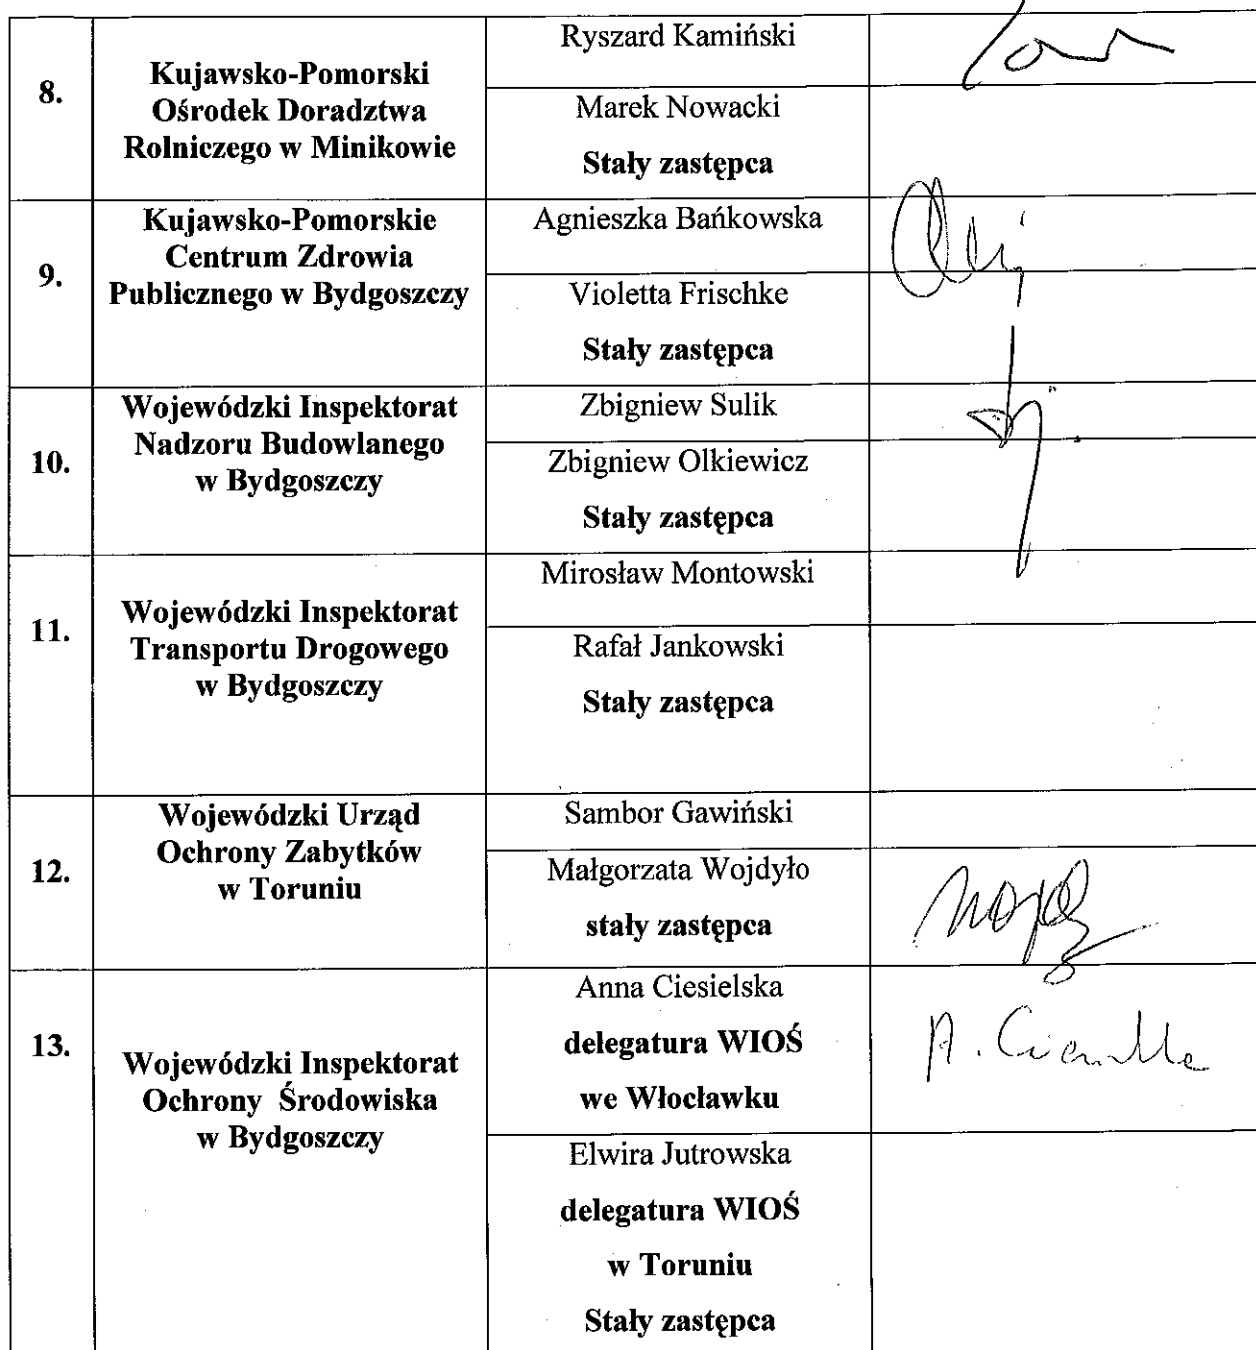 8.
Kujawsko-Pomorski
Ośrodek Doradztwa
Rolniczego w Minikowie
Ryszard Kamiński
Marek Nowacki
Stały zastępca
9.
Kujawsko-Pomorskie
Centrum Zdrowia
Publicznego w Bydgoszczy
Agnieszka Bańkowska
Violetta Frischke
Stały zastępca
10.
Wojewódzki Inspektorat
Nadzoru Budowlanego
w Bydgoszczy
Zbigniew Sulik
Zbigniew Olkiewicz
Stały zastępca
11.
Wojewódzki Inspektorat
Transportu Drogowego
w Bydgoszczy
Mirosław Montowski
Rafał Jankowski
Stały zastępca
12.
Wojewódzki Urząd
Ochrony Zabytków
w Toruniu
Sambor Gawiński
Małgorzata Wojdyło
stały zastępca
13.
Wojewódzki Inspektorat
Ochrony Środowiska
w Bydgoszczy
Anna Ciesielska
delegatura WIOŚ
we Włocławku
A.
Elwira Jutrowska
delegatura WIOŚ
w Toruniu
Stały zastępca